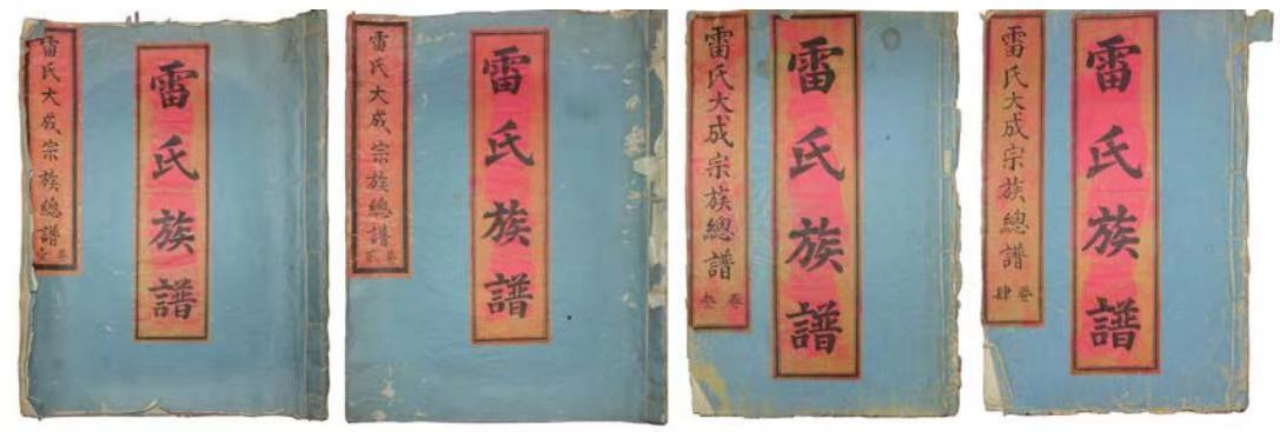 雷氏大成宗族總譜
卷壹
雷氏族譜
雷氏大成宗族總譜
卷贰
雷氏族譜
雷氏大成宗族總譜
卷叁
雷氏族譜
雷氏大成宗族總譜
卷肆
雷氏族譜